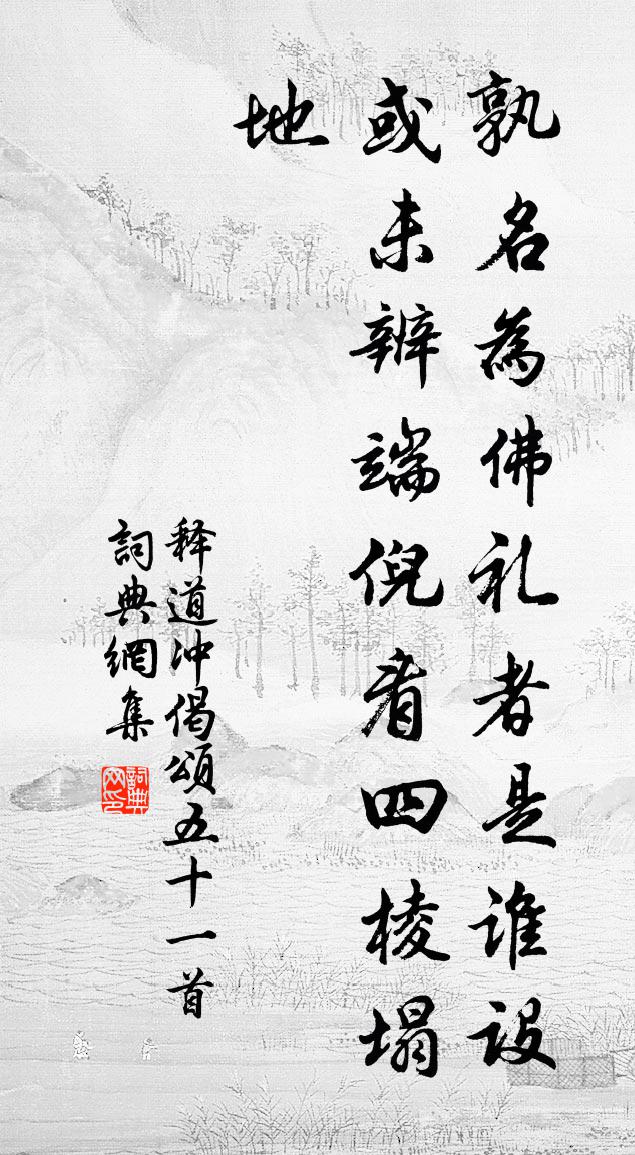 孰名為佛礼者是谁設
或未辨端倪看四棱塌
地
释道冲偈頌五十一首
詞典網集
詞典网印